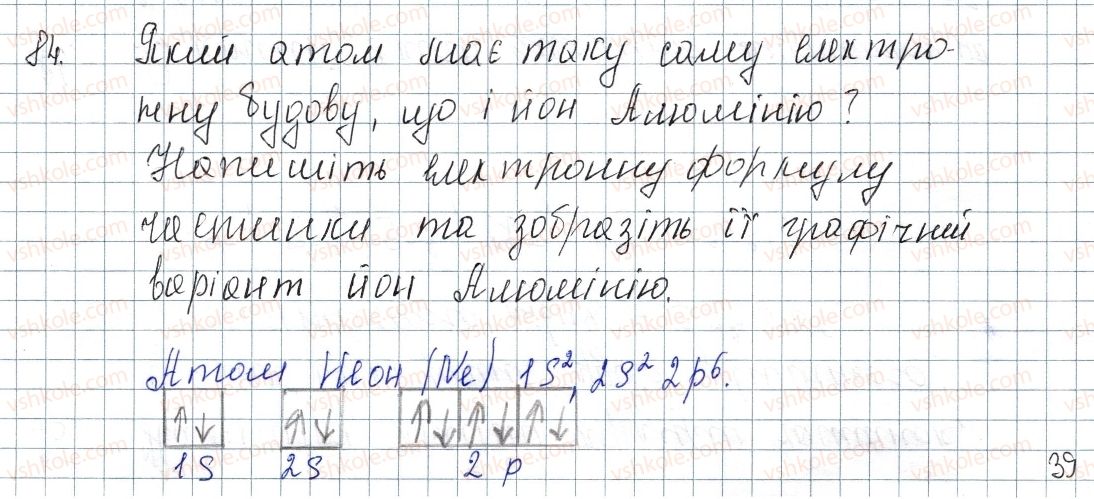 84. Який атом має таку саму електро-
нну будову, що і йон Алюмінію?
Напишіть електронну формулу
частинки та зобразіть її графічний
варіант йон Алюмінію.
Атом Неон (Ne) 1s², 2s² 2p⁶.
↑↓ ↑↓ ↑↓ ↑↓ ↑↓
1s 2s 2p
39
vshkole.com